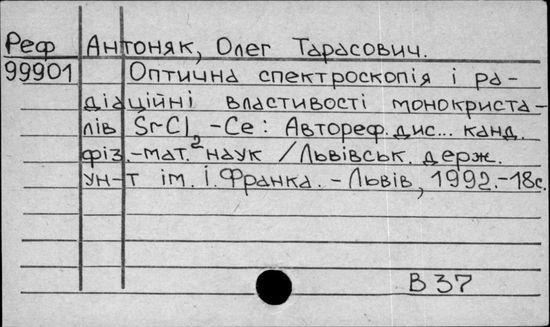 Реф Антоняк, Олег Тарасович.
99901 Оптична спектроскопія і ра-
діаційні властивості монокриста-
лів SrCl₂-Ce: Автореф. дис... канд.
фіз.-мат. наук /Львівськ. держ.
ун-т ім. І. Франка. - Львів, 1992.-18с.
В 37